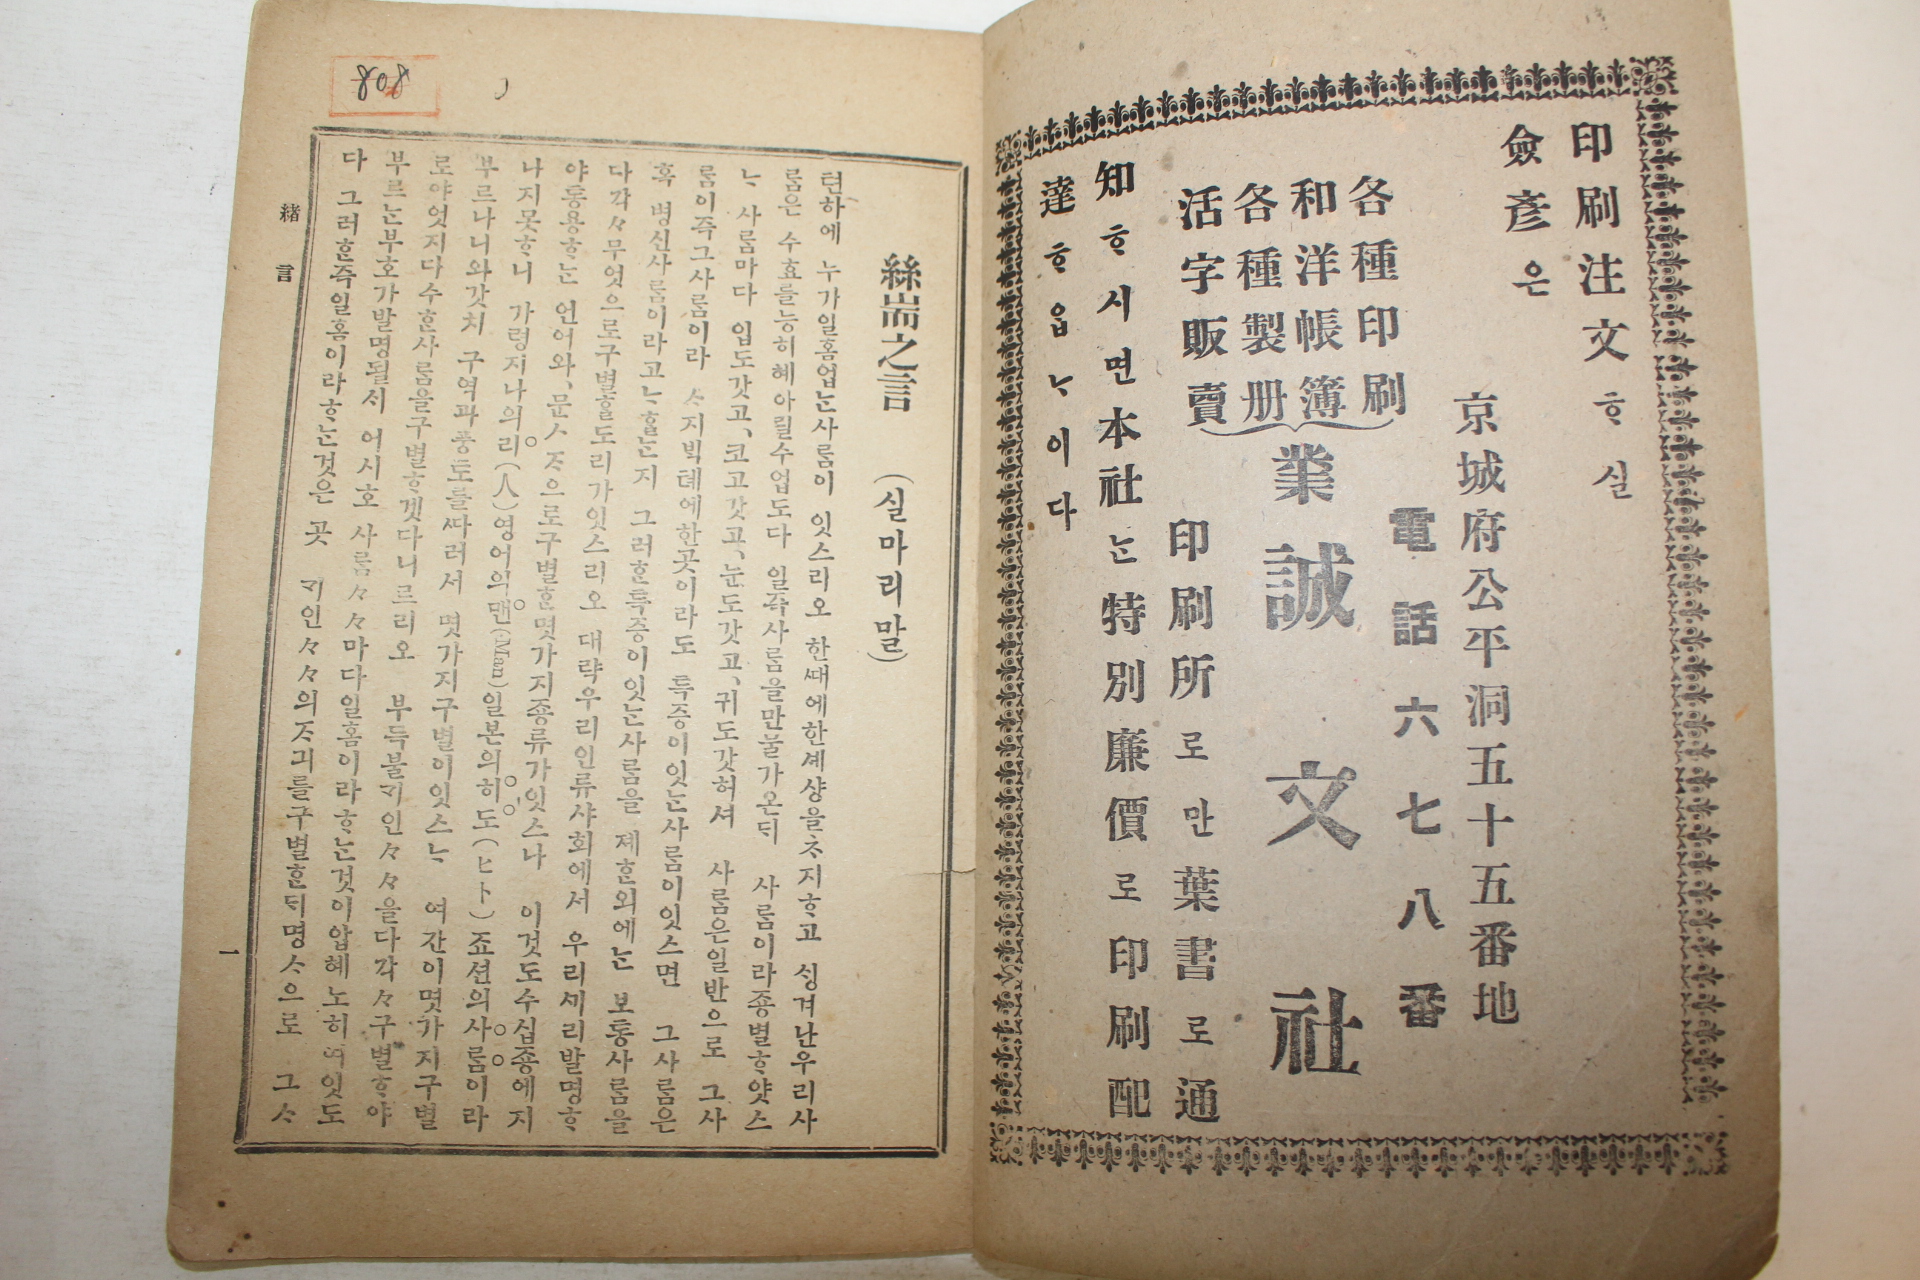 印刷注文ᄒᆞ실
僉彦은
京城府公平洞五十五番地
電話六七八番
各種印刷
和洋帳簿
各種製册
活字販賣
業誠文社
印刷所로만葉書로通
知ᄒᆞ시면本社ᄂᆞᆫ特別廉價로印刷配
達ᄒᆞ읍ᄂᆞ이다
808
絲耑之言 (실마리말)
턴하에 누가일홈업ᄂᆞᆫ사ᄅᆞᆷ이 잇스리오 한ᄯᅢ에한셰샹을ᄎᆞ지ᄒᆞ고 ᄉᆡᆼ겨난우리사
ᄅᆞᆷ은 수효를능히혜아릴수업도다 일즉사ᄅᆞᆷ을만물가온ᄃᆡ 사ᄅᆞᆷ이라죵별ᄒᆞ얏스
ᄂᆞ 사ᄅᆞᆷ마다 입도갓고、코고갓고、눈도갓고、귀도갓허셔 사ᄅᆞᆷ은일반으로 그사
ᄅᆞᆷ이즉그사ᄅᆞᆷ이라 ᄉᆞ지ᄇᆡᆨ톄에한곳이라도 특증이잇ᄂᆞᆫ사ᄅᆞᆷ이잇스면 그사ᄅᆞᆷ은
혹 병신사ᄅᆞᆷ이라고ᄂᆞᆫᄒᆞᆯᄂᆞᆫ지 그러ᄒᆞᆫ특증이잇ᄂᆞᆫ사ᄅᆞᆷ을 졔ᄒᆞᆫ외에ᄂᆞᆫ 보통사ᄅᆞᆷ을
다각々무엇으로구별ᄒᆞᆯ도리가잇스리오 대략우리인류샤회에서 우리세리발명ᄒᆞ
야통용ᄒᆞᄂᆞᆫ 언어와、문ᄉᆞᄌᆞ으로구별ᄒᆞᆫ몃가지죵류가잇스나 이것도수십죵에지
나지못ᄒᆞ니 가령지나의리(人)영어의맨(Man)일본의히도(ヒト)죠션의사ᄅᆞᆷ이라
부르나니와갓치 구역과풍토를ᄯᅡ러서 몃가지구별이잇스ᄂᆞ 여간이몃가지구별
로야엇지다수ᄒᆞᆫ사ᄅᆞᆷ을구별ᄒᆞ겟다니르리오 부득불ᄀᆡ인々々을다각々구별ᄒᆞ야
부르ᄂᆞᆫ부호가발명될서 어시호 사ᄅᆞᆷ々々마다일홈이라ᄒᆞᄂᆞᆫ것이압혜노히여잇도
다 그러ᄒᆞᆫ즉일홈이라ᄒᆞᄂᆞᆫ것은 곳 ᄀᆡ인々々의ᄌᆞ긔를구별ᄒᆞᆫᄃᆡ명ᄉᆞ으로 그ᄉᆞ
緖言
一